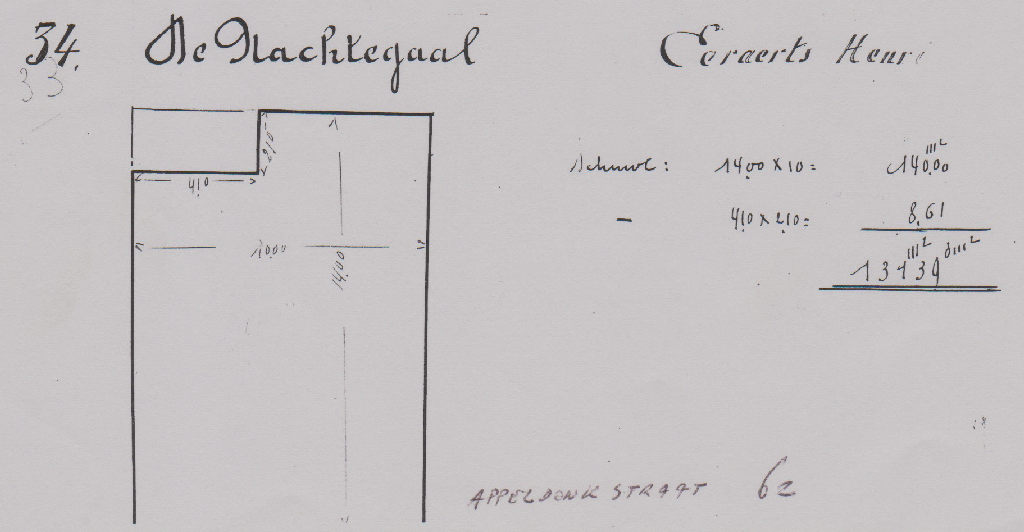 34. De Nachtegaal Eeraerts Henri
33
2,10
4,10
10,00
14,00
14,00 x 10 = 140,00 m²
- 4,10 x 2,10 = 8,61
131 m² 39 dm²
APPELDONK STRAAT 62